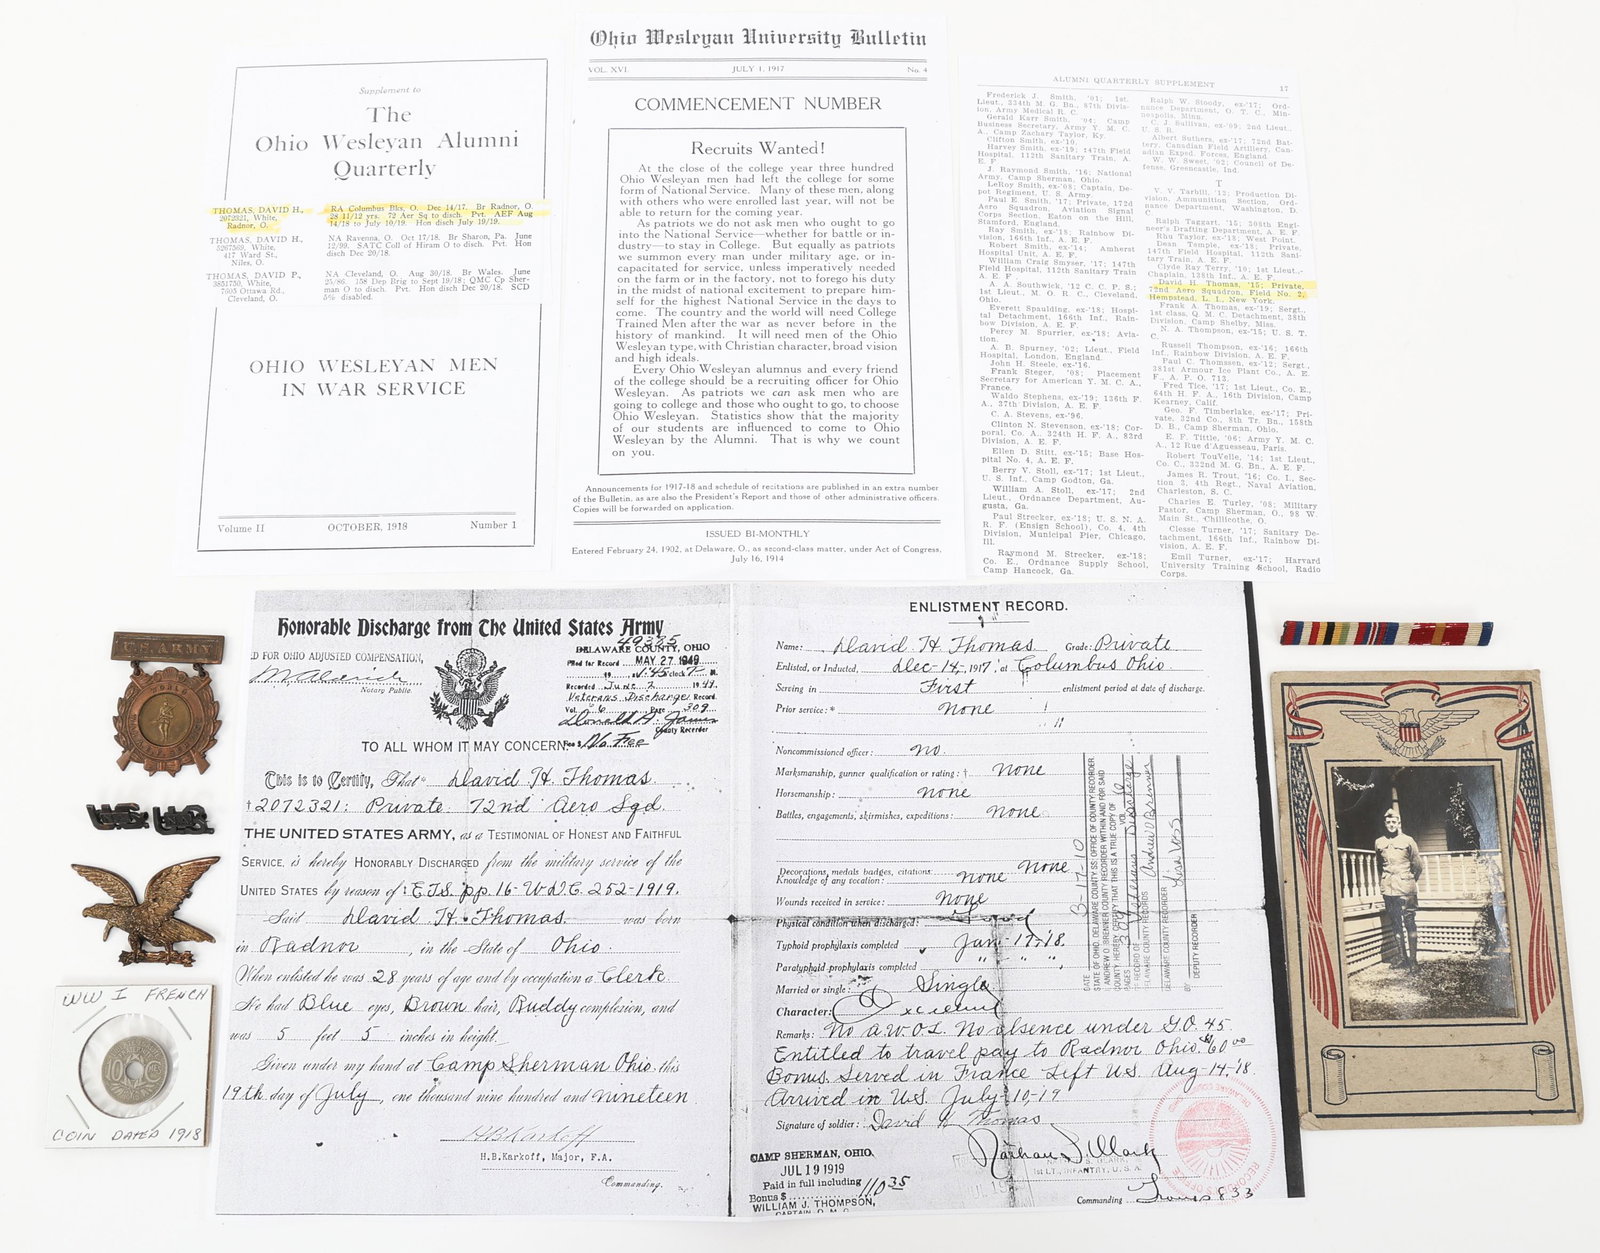 Supplement to
The
Ohio Wesleyan Alumni
Quarterly
THOMAS, DAVID H.,
2072321, White,
Radnor, O.
RA Columbus Bks, O. Dec 14/17. Br Radnor, O.
28 11/12 yrs. 72 Aer Sq to disch. Pvt. AEF Aug
14/18 to July 10/19. Hon disch July 19/19.
THOMAS, DAVID H.,
5267569, White,
417 Ward St.,
Niles, O.
NA Ravenna, O. Oct 17/18. Br Sharon, Pa. June
12/99. SATC Coll of Hiram O to disch. Pvt. Hon
disch Dec 20/18.
THOMAS, DAVID P.,
3851750, White,
7605 Ottawa Rd.,
Cleveland, O.
NA Cleveland, O. Aug 30/18. Br Wales. June
25/86. 158 Dep Brig to Sept 19/18; QMC Cp Sher-
man O to disch. Pvt. Hon disch Dec 20/18. SCD
5% disabled.
OHIO WESLEYAN MEN
IN WAR SERVICE
Volume II OCTOBER, 1918 Number 1
Ohio Wesleyan University Bulletin
VOL. XVI JULY 1, 1917 No. 4
COMMENCEMENT NUMBER
Recruits Wanted!
At the close of the college year three hundred
Ohio Wesleyan men had left the college for some
form of National Service. Many of these men, along
with others who were enrolled last year, will not
be able to return for the coming year.
As patriots we do not ask men who ought to go
into the National Service—whether for battle or in-
dustry—to stay in College. But equally as patriots
we summon every man under military age, or in-
capacitated for service, unless imperatively needed
on the farm or in the factory, not to forego his duty
in the midst of national excitement to prepare him-
self for the highest National Service in the days to
come. The country and the world will need College
Trained Men after the war as never before in the
history of mankind. It will need men of the Ohio
Wesleyan type, with Christian character, broad vision
and high ideals.
Every Ohio Wesleyan alumnus and every friend
of the college should be a recruiting officer for Ohio
Wesleyan. As patriots we can ask men who are
going to college and those who ought to go, to choose
Ohio Wesleyan. Statistics show that the majority
of our students are influenced to come to Ohio
Wesleyan by the Alumni. That is why we count
on you.
Announcements for 1917-18 and schedule of recitations are published in an extra number
of the Bulletin, as are also the President's Report and those of other administrative officers.
Copies will be forwarded on application.
ISSUED BI-MONTHLY
Entered February 24, 1902, at Delaware, O., as second-class matter, under Act of Congress,
July 16, 1914
ALUMNI QUARTERLY SUPPLEMENT 17
Frederick J. Smith, '01; 1st
Lieut., 334th M. G. Bn., 87th Divis-
ion, Army Medical R. C.
Gerald Karr Smith, '04; Camp
Business Secretary, Army Y. M. C.
A., Camp Zachary Taylor, Ky.
Clifton Smith, ex-'10.
Harvey Smith, ex-'19; 147th Field
Hospital, 112th Sanitary Train, A.
E. F
J. Raymond Smith, '16; National
Army, Camp Sherman, Ohio.
LeRoy Smith, ex-'08; Captain, De-
pot Regiment, U. S. Army.
Paul E. Smith, '17; Private, 172d
Aero Squadron, Aviation Signal
Corps Section, Eaton on the Hill,
Stamford, England.
Ray Smith, ex-'18; Rainbow Di-
vision, 166th Inf., A. E. F.
Robert Smith, ex-'14; Amherst
Hospital Unit, A. E. F.
William Craig Smyser, '17; 147th
Field Hospital, 112th Sanitary Train,
A. E. F
A. A. Southwick, '12 C. C. P. S.;
1st Lieut., M. O. R. C., Cleveland,
Ohio.
Everett Spaulding, ex-'18; Hospi-
tal Detachment, 166th Inf., Rain-
bow Division, A. E. F.
Percy M. Spurrier, ex-'18; Avia-
tion.
A. B. Spurney, '02; Lieut., Field
Hospital, London, England.
John H. Steele, ex-'16.
Frank Steger, '08; Placement
Secretary for American Y. M. C. A.,
France.
Waldo Stephens, ex-'19; 136th F.
A., 37th Division, A. E. F.
C. A. Stevens, ex-'96.
Clinton N. Stevenson, ex-'18; Cor-
poral, Co. A., 324th H. F. A., 83rd
Division, A. E. F.
Ellen D. Stitt, ex-'15; Base Hos-
pital No. 4, A. E. F.
Berry V. Stoll, ex-'17; 1st Lieut.,
U. S. Inf., Camp Gordon, Ga.
William A. Stoll, ex-'17; 2nd
Lieut., Ordnance Department, Au-
gusta, Ga.
Paul Strecker, ex-'18; U. S. N. A.
R. F. (Ensign School), Co. 4, 4th
Division, Municipal Pier, Chicago,
Ill.
Raymond M. Strecker, ex-'18;
Co. E., Ordnance Supply School,
Camp Hancock, Ga.
Ralph W. Stoody, ex-'17; Ord-
nance Department, O. T. C., Min-
neapolis, Minn.
C. J. Sullivan, ex-'09; 2nd Lieut.,
U. S. R.
Albert Suthers, ex-'17; 72nd Bat-
tery, Canadian Field Artillery, Can-
adian Exped. Forces, England
W. W. Sweet, '02; Council of De-
fense, Greencastle, Ind.
T
V. V. Tarbill, '12; Production Di-
vision, Ammunition Section, Ord-
nance Department, Washington, D.
C.
Ralph Taggart, '15; 308th Engi-
neer's Drafting Department, A. E. F.
Rhu Taylor, ex-'18; West Point.
Dean Temple, ex-'18; Private,
147th Field Hospital, 112th Sani-
tary Train, A. E. F.
Clyde Ray Terry, '10; 1st Lieut.,
Chaplain, 138th Inf., A. E. F.
David H. Thomas, '15; Private,
72nd Aero Squadron, Field No. 2,
Hempstead, L. I., New York.
Frank A. Thomas, ex-'19; Sergt.,
1st class, Q. M. C. Detachment, 38th
Division, Camp Shelby, Miss.
N. A. Thompson, ex-'15; U. S. T.
C.
Russell Thompson, ex-'16; 166th
Inf., Rainbow Division, A. E. F.
Paul C. Thomssen, ex-'12; Sergt.,
381st Armour Ice Plant Co., A. E.
F., A. P. O. 713.
Fred Tice, '17; 1st Lieut., Co. E.,
64th H. F. A., 16th Division, Camp
Kearney, Calif.
Geo. F. Timberlake, ex-'17; Pri-
vate, 32nd Co., 8th Tr. Bn., 158th
D. B., Camp Sherman, Ohio.
E. F. Tittle, '06; Army Y. M. C.
A., 12 Rue d'Aguesseau, Paris.
Robert TouVelle, '14; 1st Lieut.,
Co. C., 332nd M. G. Bn., A. E. F.
James R. Trout, '16; Co. I., Sec-
tion 3, 4th Regt., Naval Aviation,
Charleston, S. C.
Charles E. Turley, '08; Military
Pastor, Camp Sherman, O., 98 W
Main St., Chillicothe, O.
Clesse Turner, '17; Sanitary De-
tachment, 166th Inf., Rainbow Di-
vision, A. E. F.
Emil Turner, ex-'17; Harvard
University Training School, Radio
Corps.
U.S. ARMY
WORLD
U.S. U.S.
WW I FRENCH
10 CES
COIN DATED 1918
Honorable Discharge from The United States Army
49385
DELAWARE COUNTY, OHIO
Filed for Record MAY 27 1949
1:45 o'clock P. M.
Recorded June 2 1949
Veterans Discharges Record
Vol. 6 Page 309
Donald A. James
County Recorder
Fee $ No Fee
D FOR OHIO ADJUSTED COMPENSATION,
Notary Public.
TO ALL WHOM IT MAY CONCERN:
This is to Certify, That* David H. Thomas
†2072321: Private: 72nd Aero Sqd.
THE UNITED STATES ARMY, as a TESTIMONIAL OF HONEST AND FAITHFUL
SERVICE, is hereby HONORABLY DISCHARGED from the military service of the
UNITED STATES by reason of: E.T.S. pp. 16-W.D.C. 252-1919.
Said David H. Thomas was born
in Radnor, in the State of Ohio.
When enlisted he was 28 years of age and by occupation a Clerk
He had Blue eyes, Brown hair, Ruddy complexion, and
was 5 feet 5 inches in height.
Given under my hand at Camp Sherman Ohio. this
19th day of July, one thousand nine hundred and nineteen
H B Karkoff
H.B.Karkoff, Major, F.A.
Commanding.
ENLISTMENT RECORD.
Name: David H Thomas Grade: Private
Enlisted, or Inducted, Dec-14, 1917 at Columbus Ohio.
Serving in First enlistment period at date of discharge.
Prior service:* none
Noncommissioned officer: no.
Marksmanship, gunner qualification or rating:† none
Horsemanship: none
Battles, engagements, skirmishes, expeditions: none
Decorations, medals badges, citations: none
Knowledge of any vocation: none
Wounds received in service: none
Physical condition when discharged: Good
Typhoid prophylaxis completed Jan-17-'18.
Paratyphoid prophylaxis completed " " "
Married or single: Single
Character: Excellent
Remarks: No a.w.o.l. No absence under G.O. 45
Entitled to travel pay to Radnor Ohio. $60.00
Bonus. Served in France Left U.S. Aug-14-'18.
Arrived in U.S. July-10-19
Signature of soldier: David H Thomas
Nathan S. Clark
1st LT., INFANTRY, U. S. A.
Commanding
CAMP SHERMAN, OHIO,
JUL 19 1919
Paid in full including
Bonus $ 110.35
WILLIAM J. THOMPSON,
CAPTAIN. Q. M. C.
DATE 3-17-10
STATE OF OHIO, DELAWARE COUNTY SS: OFFICE OF COUNTY RECORDER
ANDREW O BRENNER WITHIN AND FOR SAID
COUNTY HEREBY CERTIFY THAT THIS IS A TRUE COPY OF
PAGES 309 VOL. 6
RECORD OF Veterans Discharge
DELAWARE COUNTY RECORDS Andrew O Brenner
DELAWARE COUNTY RECORDER
BY Lisa Voss DEPUTY RECORDER